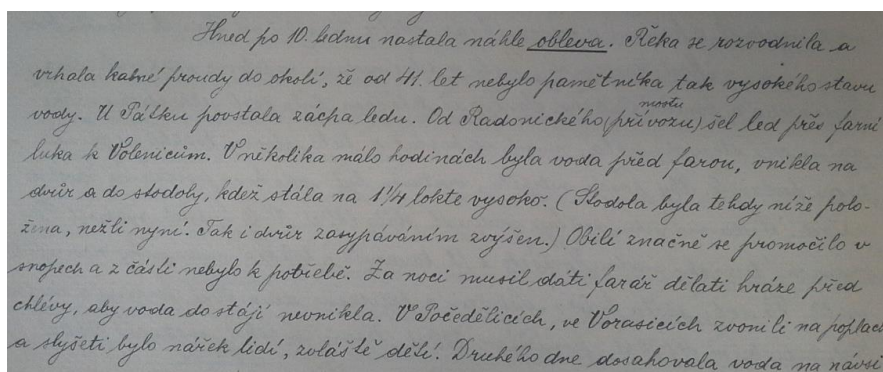 Hned po 10. lednu nastala náhle obleva. Řeka se rozvodnila a
vrhala kalné proudy do okolí, že od 41. let nebylo pamětníka tak vysokého stavu
vody. U Pátku povstala zácpa ledu. Od Radonického (přívozu) mostu šel led přes farní
luka k Volenicům. V několika málo hodinách byla voda před farou, vnikla na
dvůr a do stodoly, kdež stála na 1 1/4 lokte vysoko. (Stodola byla tehdy níže polo-
žena, nežli nyní. Tak i dvůr zasypáváním zvýšen.) Obilí značně se promočilo v
snopech a z části nebylo k potřebě. Za noci musil dáti farář dělati hráze před
chlévy, aby voda do stájí nevnikla. V Počedělicích, ve Vorasicích zvonili na poplach
a slyšeti bylo nářek lidí, zvláště dětí. Druhého dne dosahovala voda na návsi